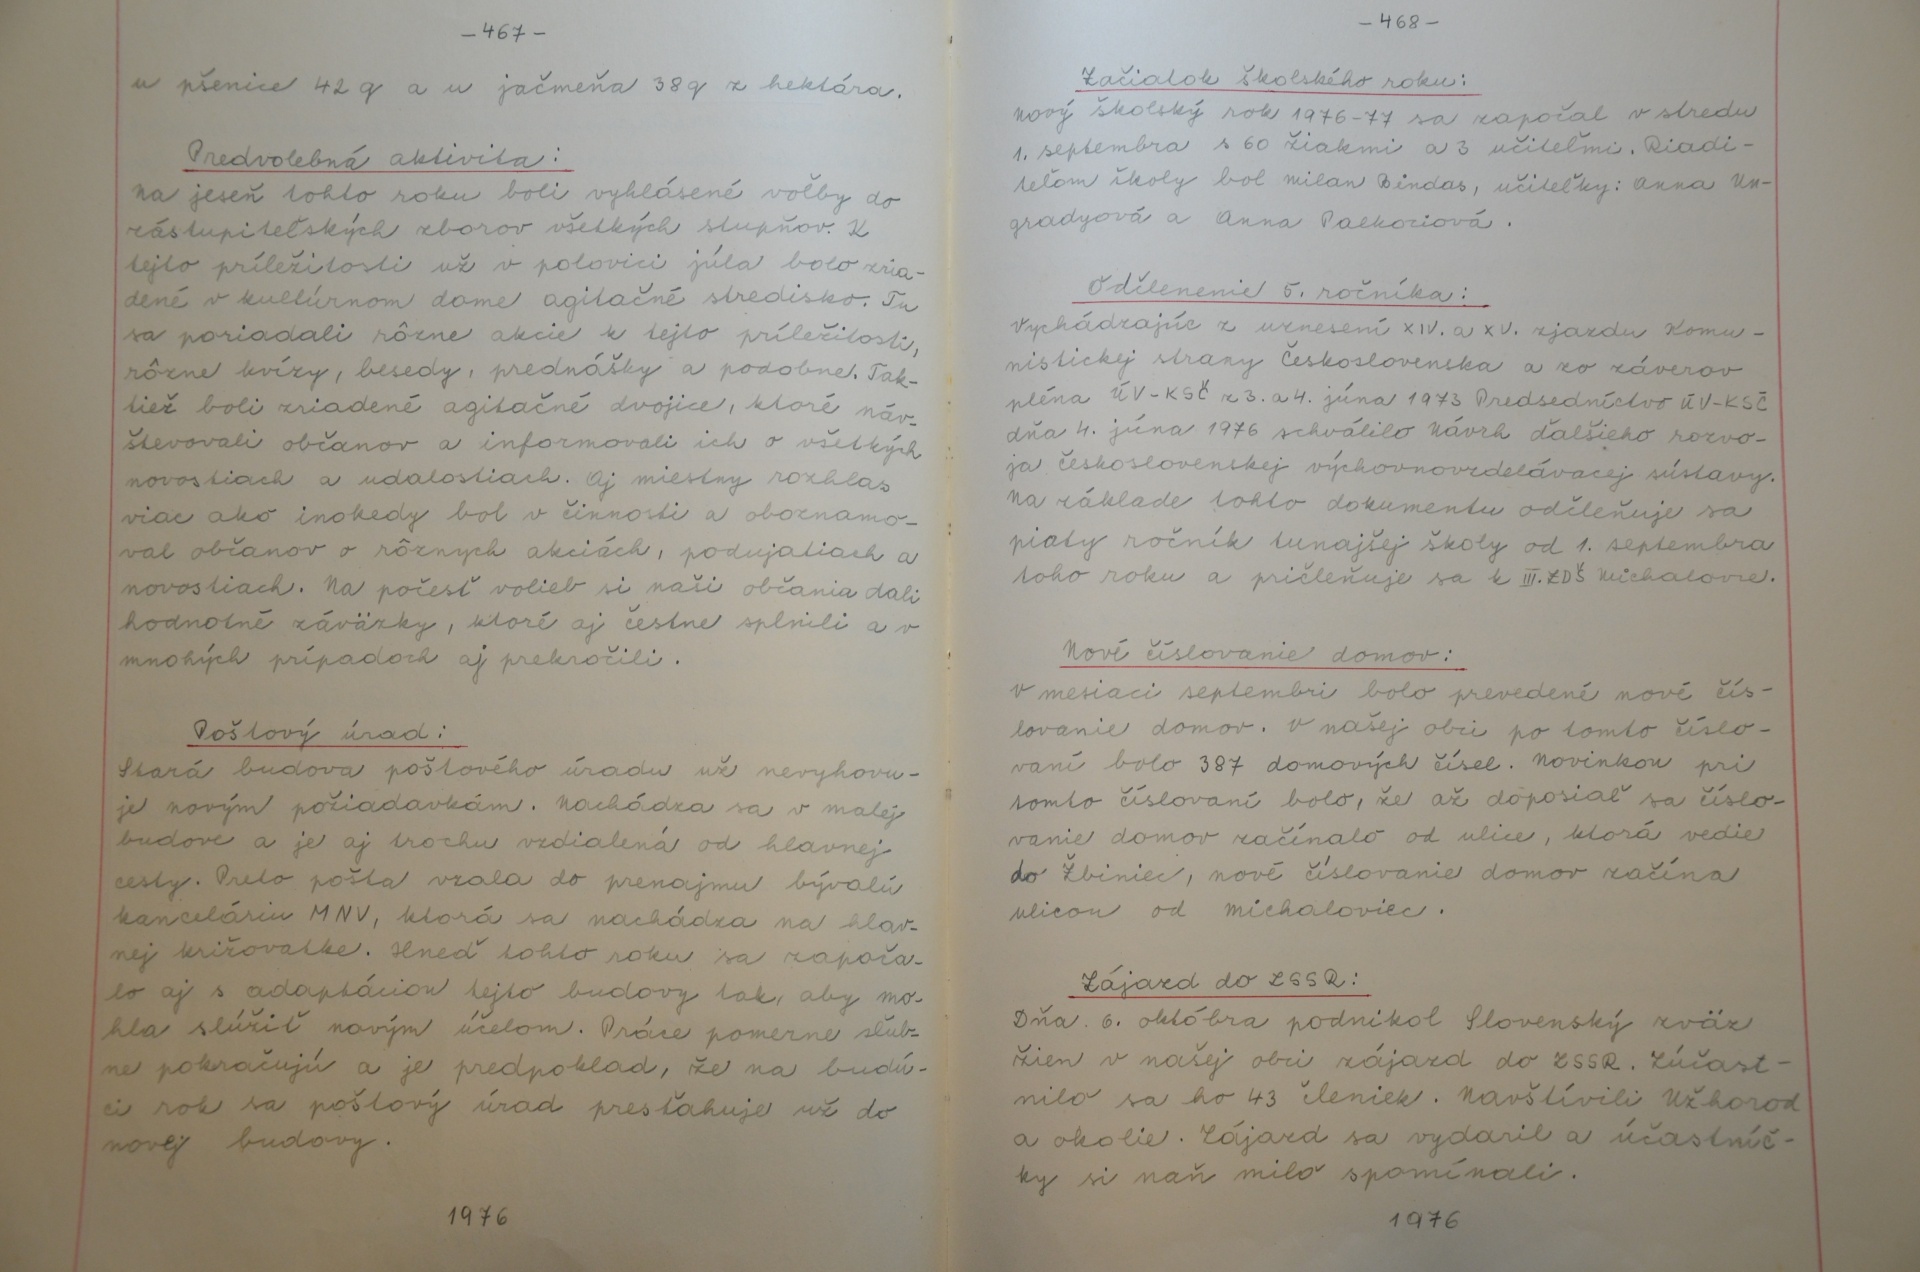 - 467 -
u pšenice 42 q a u jačmeňa 38 q z hektára.
Predvolebná aktivita:
Na jeseň tohto roku boli vyhlásené voľby do
zástupiteľských zborov všetkých stupňov. K
tejto príležitosti už v polovici júla bolo zria-
dené v kultúrnom dome agitačné stredisko. Tu
sa poriadali rôzne akcie k tejto príležitosti,
rôzne kvízy, besedy, prednášky a podobne. Tak-
tiež boli zriadené agitačné dvojice, ktoré náv-
števovali občanov a informovali ich o všetkých
novostiach a udalostiach. Aj miestny rozhlas
viac ako inokedy bol v činnosti a oboznamo-
val občanov o rôznych akciách, podujatiach a
novostiach. Na počesť volieb si naši občania dali
hodnotné záväzky, ktoré aj čestne splnili a v
mnohých prípadoch aj prekročili.
Poštový úrad:
Stará budova poštového úradu už nevyhovu-
je novým požiadavkám. Nachádza sa v malej
budove a je aj trochu vzdialená od hlavnej
cesty. Preto pošta vzala do prenajmu bývalú
kanceláriu MNV, ktorá sa nachádza na hlav-
nej križovatke. Hneď tohto roku sa započa-
lo aj s adaptáciou tejto budovy tak, aby mo-
hla slúžiť novým účelom. Práce pomerne sľub-
ne pokračujú a je predpoklad, že na budú-
ci rok sa poštový úrad presťahuje už do
novej budovy.
1976
- 468 -
Začiatok školského roku:
Nový školský rok 1976-77 sa započal v stredu
1. septembra s 60 žiakmi a 3 učiteľmi. Riadi-
teľom školy bol Milan Bindas, učiteľky: Anna Un-
gradyová a Anna Paľkociová.
Odčlenenie 5. ročníka:
Vychádzajúc z uznesení XIV. a XV. zjazdu Komu-
nistickej strany Československa a zo záverov
pléna ÚV-KSČ z 3. a 4. júna 1973 Predsedníctvo ÚV-KSČ
dňa 4. júna 1976 schválilo Návrh ďalšieho rozvo-
ja československej výchovnovzdelávacej sústavy.
Na základe tohto dokumentu odčleňuje sa
piaty ročník tunajšej školy od 1. septembra
toho roku a pričleňuje sa k III. ZDŠ Michalovce.
Nové číslovanie domov:
V mesiaci septembri bolo prevedené nové čís-
lovanie domov. V našej obci po tomto číslo-
vaní bolo 387 domových čísel. Novinkou pri
tomto číslovaní bolo, že až doposiaľ sa číslo-
vanie domov začínalo od ulice, ktorá vedie
do Žbiniec, nové číslovanie domov začína
ulicou od Michaloviec.
Zájazd do ZSSR:
Dňa 6. októbra podnikol Slovenský zväz
žien v našej obci zájazd do ZSSR. Zúčast-
nilo sa ho 43 členiek. Navštívili Užhorod
a okolie. Zájazd sa vydaril a účastníč-
ky si naň milo spomínali.
1976